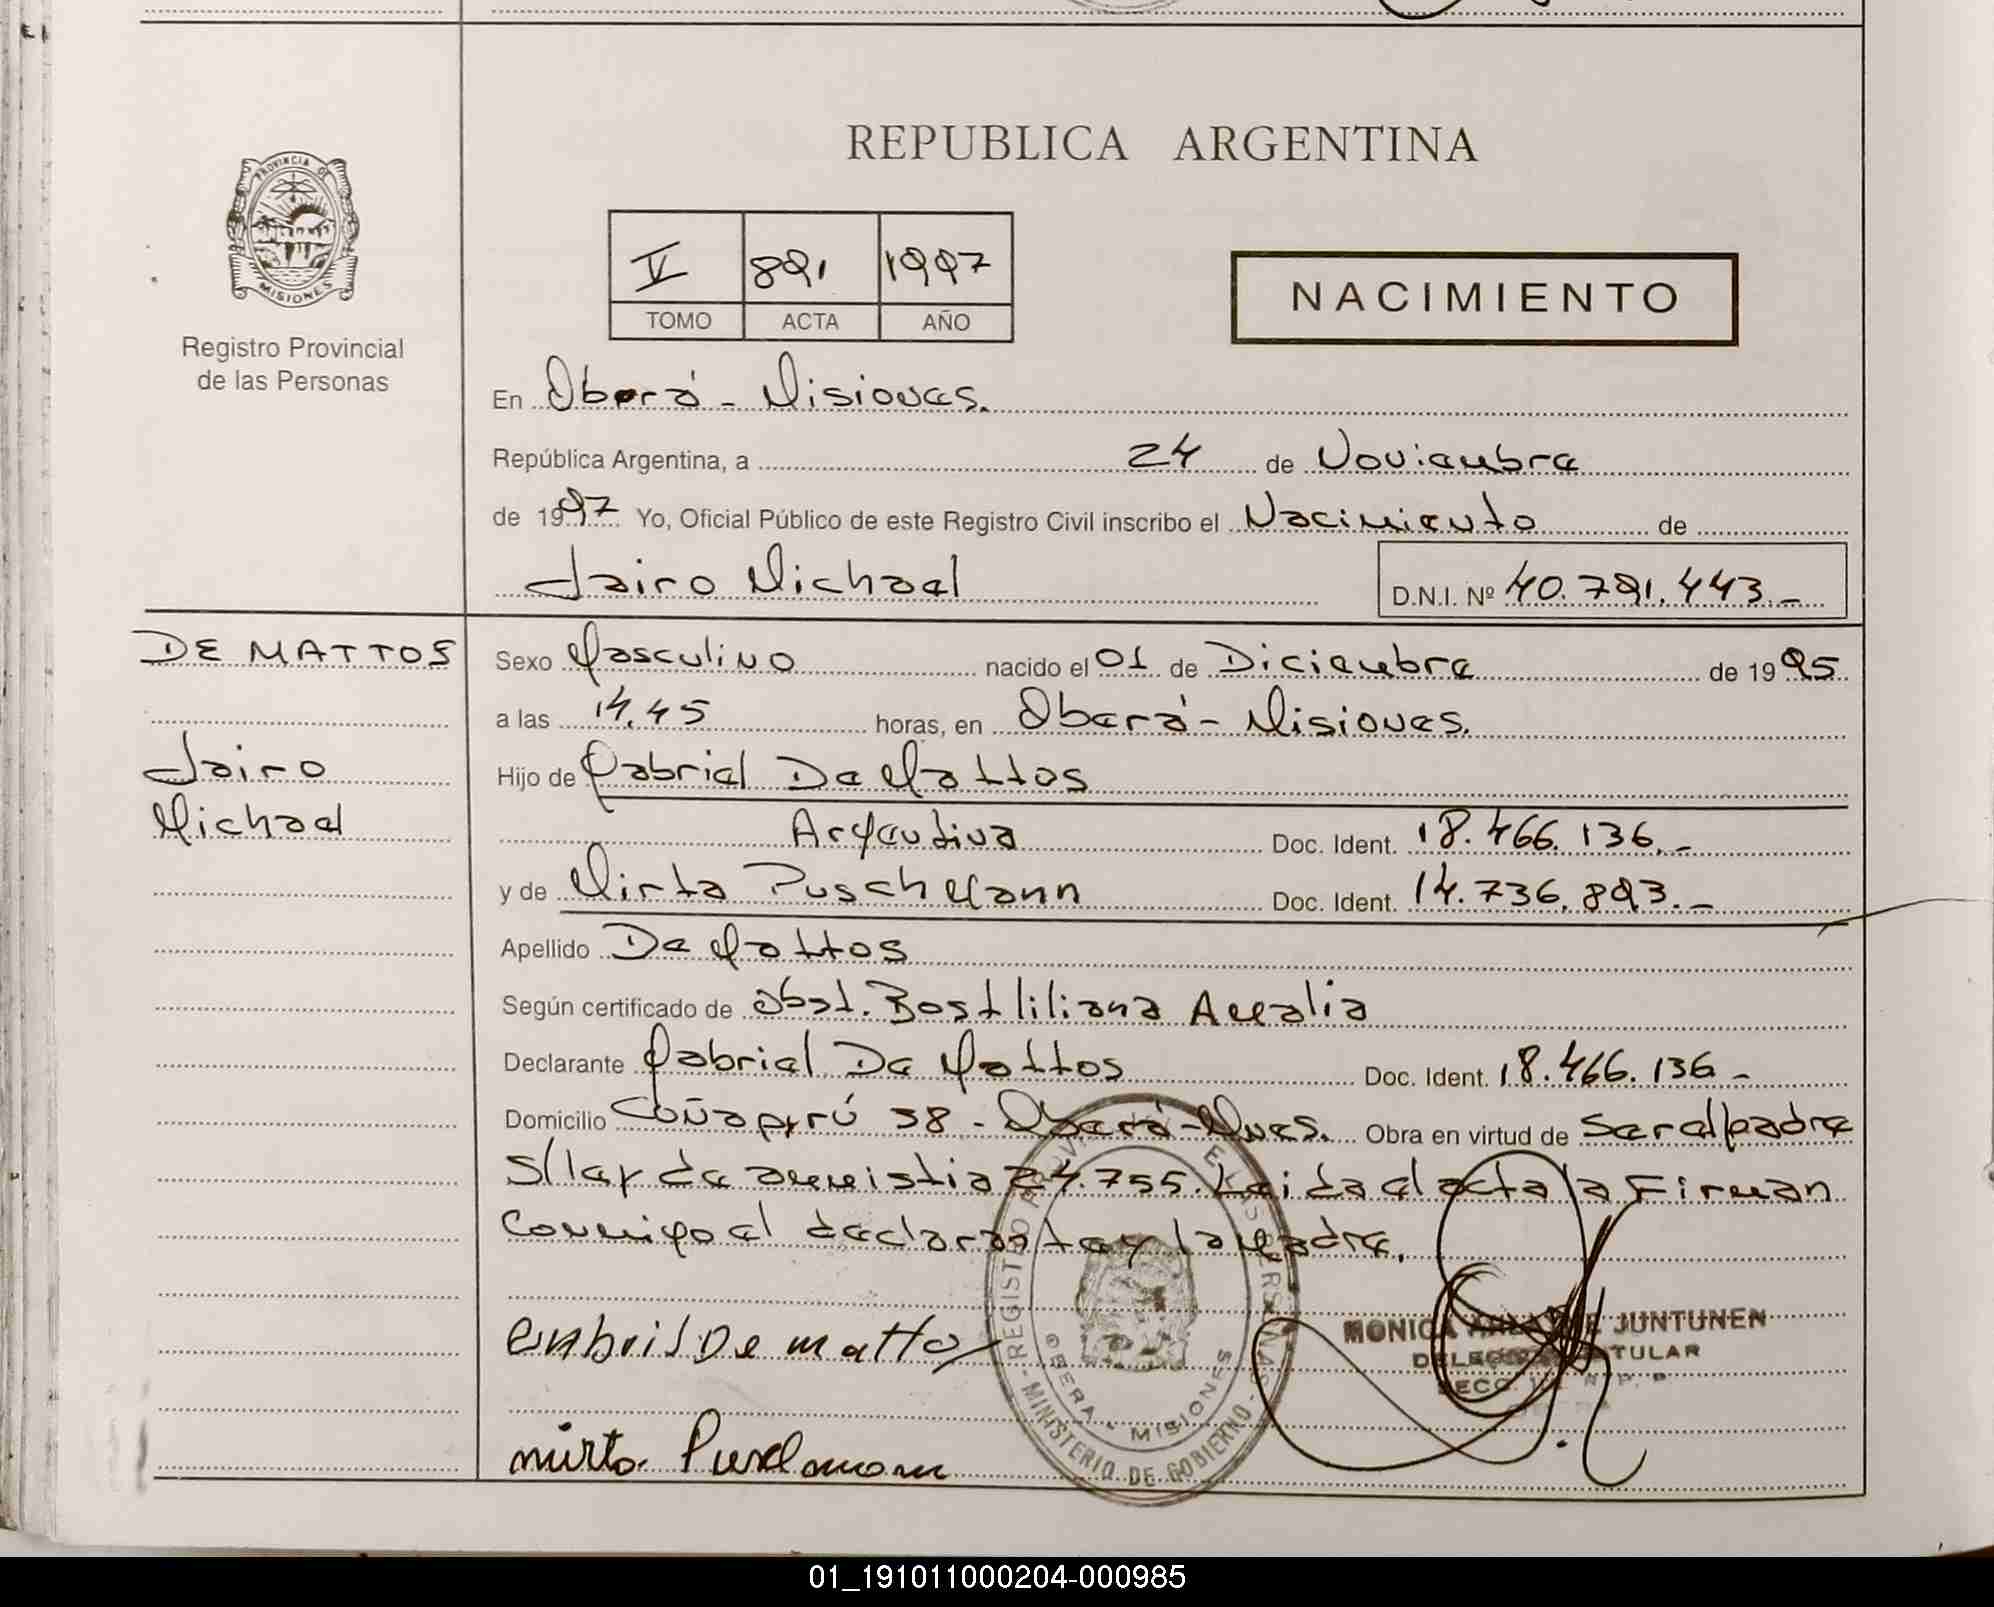 PROVINCIA DE
MISIONES
Registro Provincial
de las Personas
REPUBLICA ARGENTINA
V 891 1997
TOMO ACTA AÑO
NACIMIENTO
En Oberá - Misiones.
República Argentina, a 24 de Noviembre
de 1997 Yo, Oficial Público de este Registro Civil inscribo el Nacimiento de
Jairo Michael D.N.I. Nº 40.791.443.-
DE MATTOS
Jairo
Michael
Sexo Masculino nacido el 01 de Diciembre de 1995
a las 14.45 horas, en Oberá - Misiones.
Hijo de Gabriel De Mattos
Argentina Doc. Ident. 18.466.136.-
y de Mirta Puschmann Doc. Ident. 14.736.893.-
Apellido De Mattos
Según certificado de obst. Bost liliana Amalia
Declarante Gabriel De Mattos Doc. Ident. 18.466.136-
Domicilio Cuñapirú 38 - Oberá - Mnes. Obra en virtud de ser el padre
S/ ley de amnistia 24.755. Leida el acta la Firman
conmigo el declarante y la Madre.
De matto
mirta
MONICA JUNTUNEN
REGISTRO PROVINCIAL DE LAS PERSONAS
OBERA - MISIONES
- MINISTERIO DE GOBIERNO -
01_191011000204-000985